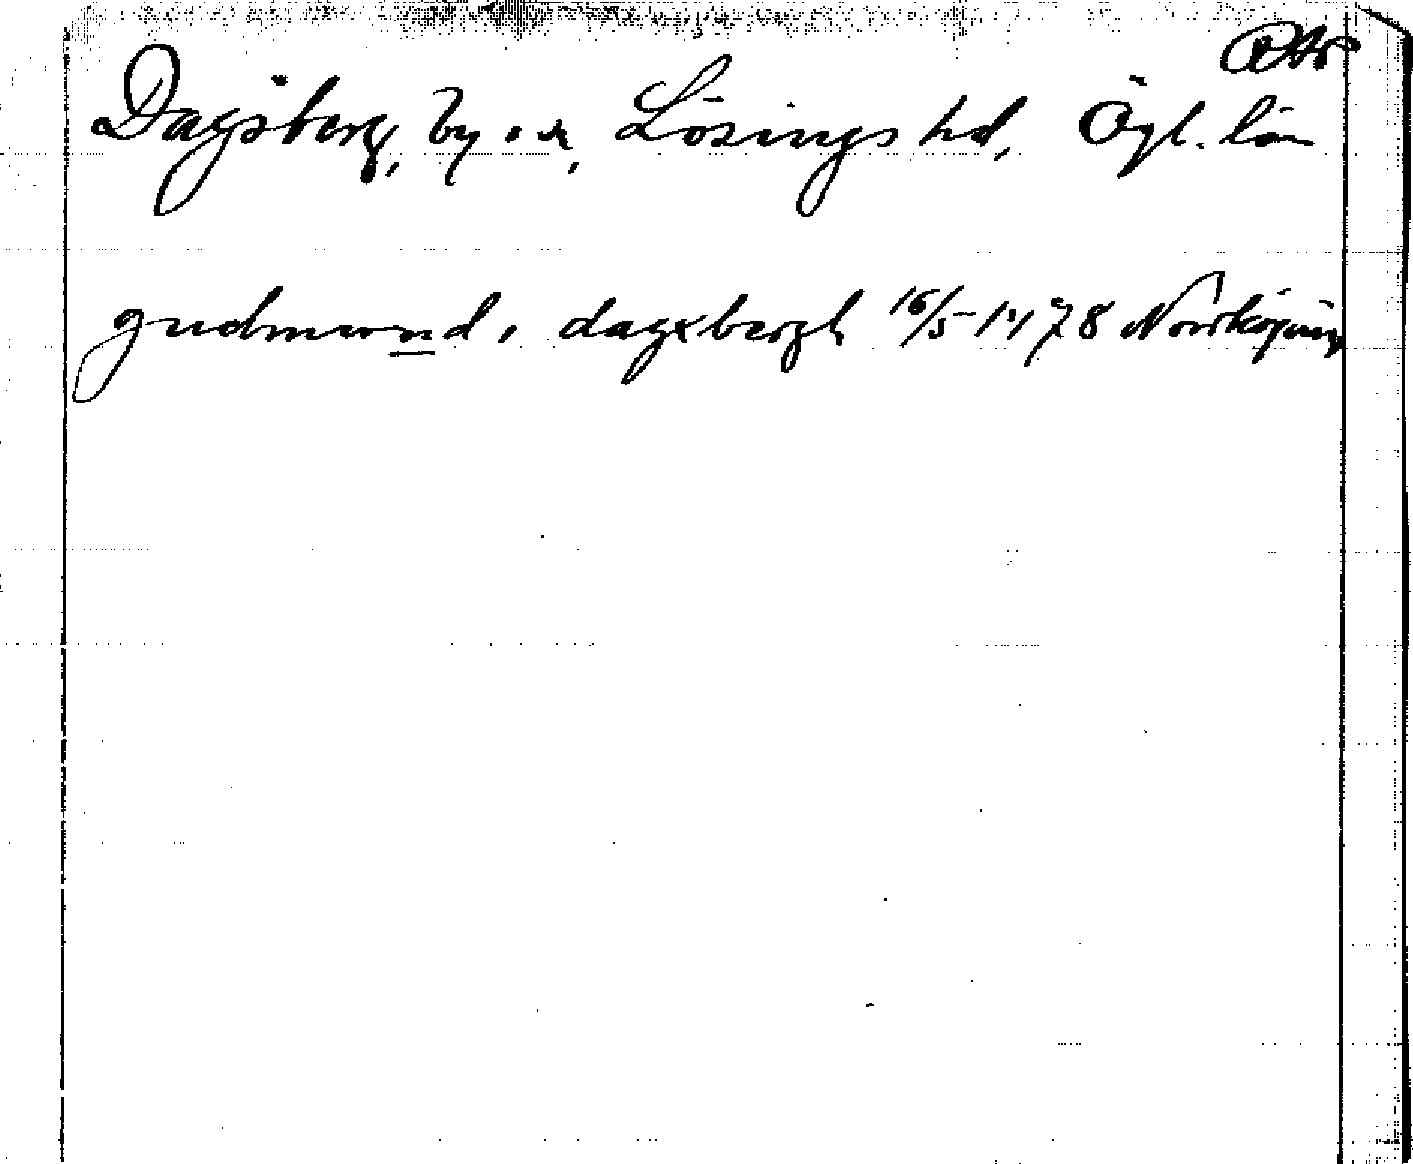 Dagsberg, by o. sn, Lösings hd, Ögl. län
gudmund i dagxbergh 16/5 1478 Norrköping